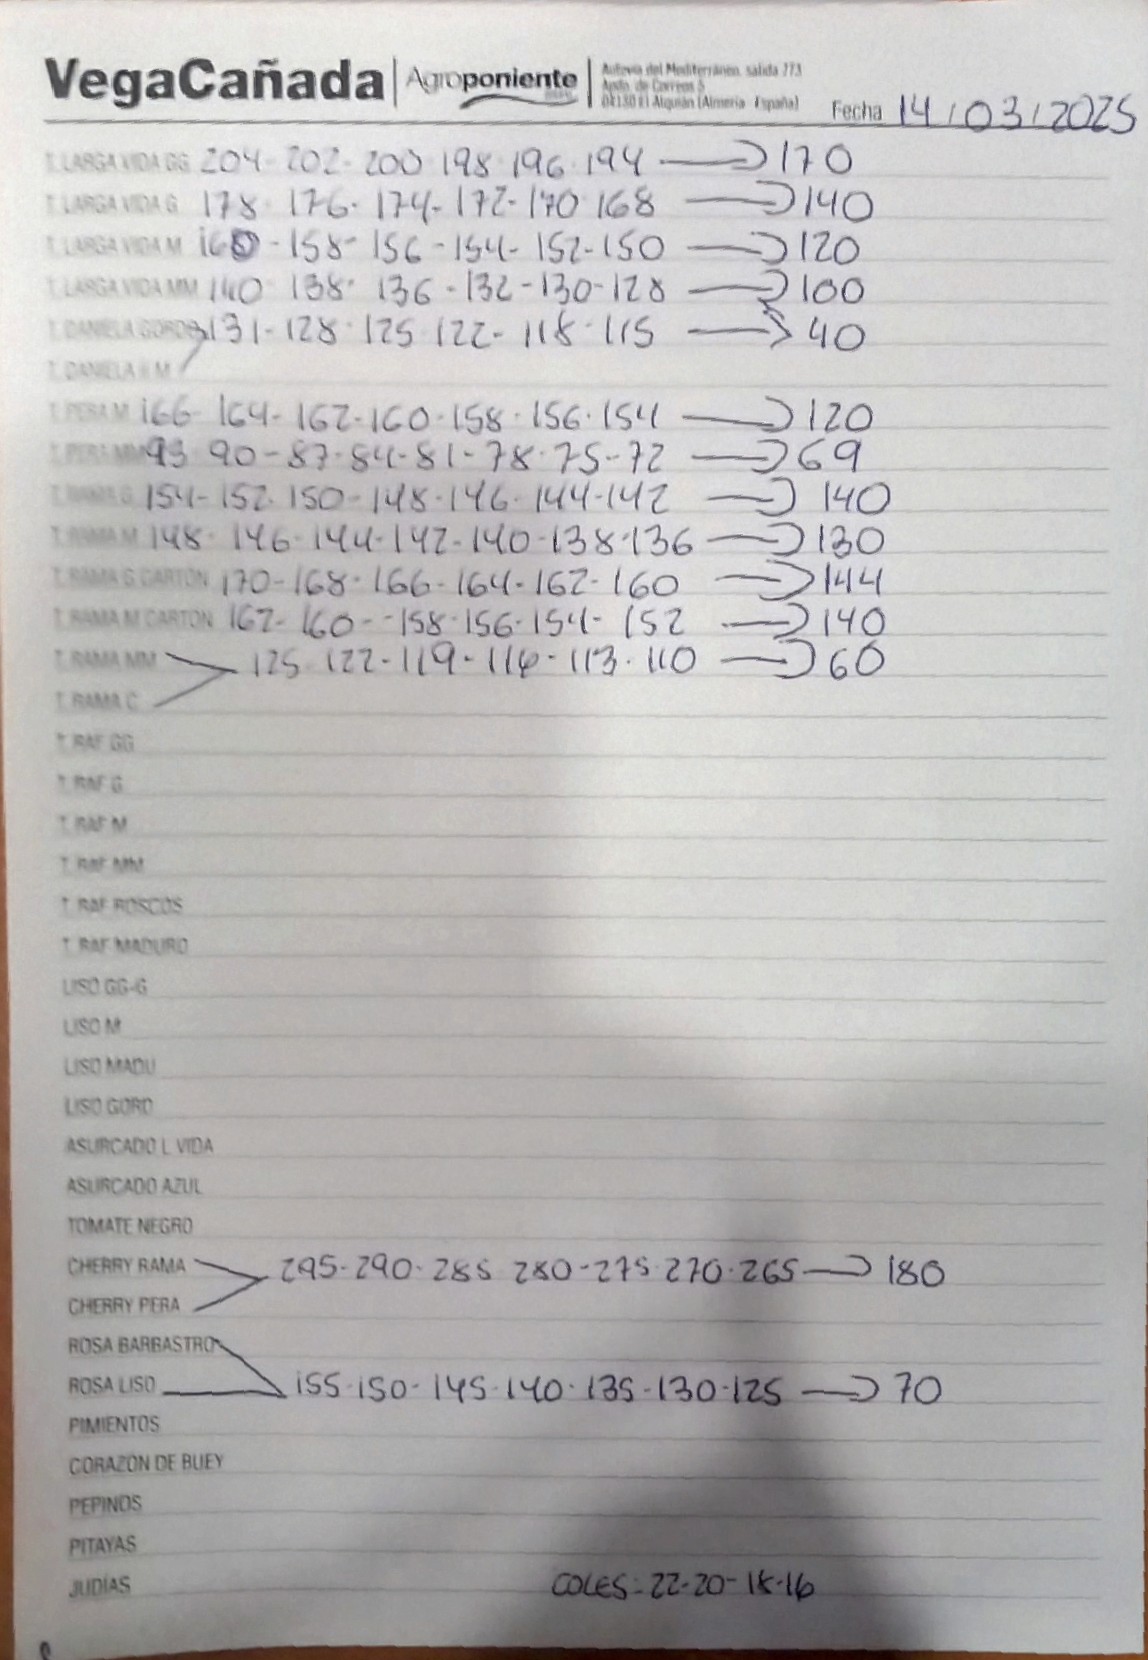 VegaCañada Agroponiente Autovía del Mediterráneo, salida 273
Apdo. de Correos 5
04130 El Alquián (Almería - España)
Fecha 14/03/2025
T. LARGA VIDA GG 204-202-200-198-196-194 → 170
T. LARGA VIDA G 178-176-174-172-170-168 → 140
T. LARGA VIDA M 160-158-156-154-152-150 → 120
T. LARGA VIDA MM 140-138-136-132-130-128 → 100
T. DANIELA GORDO 131-128-125-122-118-115 → 40
T. DANELA II M
T. PERA M 166-164-162-160-158-156-154 → 120
T. PERA MM 93-90-87-84-81-78-75-72 → 69
T. RAMA G 154-152-150-148-146-144-142 → 140
T. RAMA M 148-146-144-142-140-138-136 → 130
T. RAMA G CARTON 170-168-166-164-162-160 → 144
T. RAMA M CARTON 162-160--158-156-154-152 → 140
T. RAMA MM 125-122-119-116-113-110 → 60
T. RAMA C
T. RAF GG
T. RAF G
T. RAF M
T. RAF MM
T. RAF ROSCOS
T. RAF MADURO
LISO GG-G
LISO M
LISO MADU
LISO GORD
ASURCADO L. VIDA
ASURCADO AZUL
TOMATE NEGRO
CHERRY RAMA 295-290-285 280-275-270-265 → 180
CHERRY PERA
ROSA BARBASTRO
ROSA LISO 155-150-145-140-135-130-125 → 70
PIMIENTOS
CORAZÓN DE BUEY
PEPINOS
PITAYAS
JUDÍAS COLES: 22-20-18-16